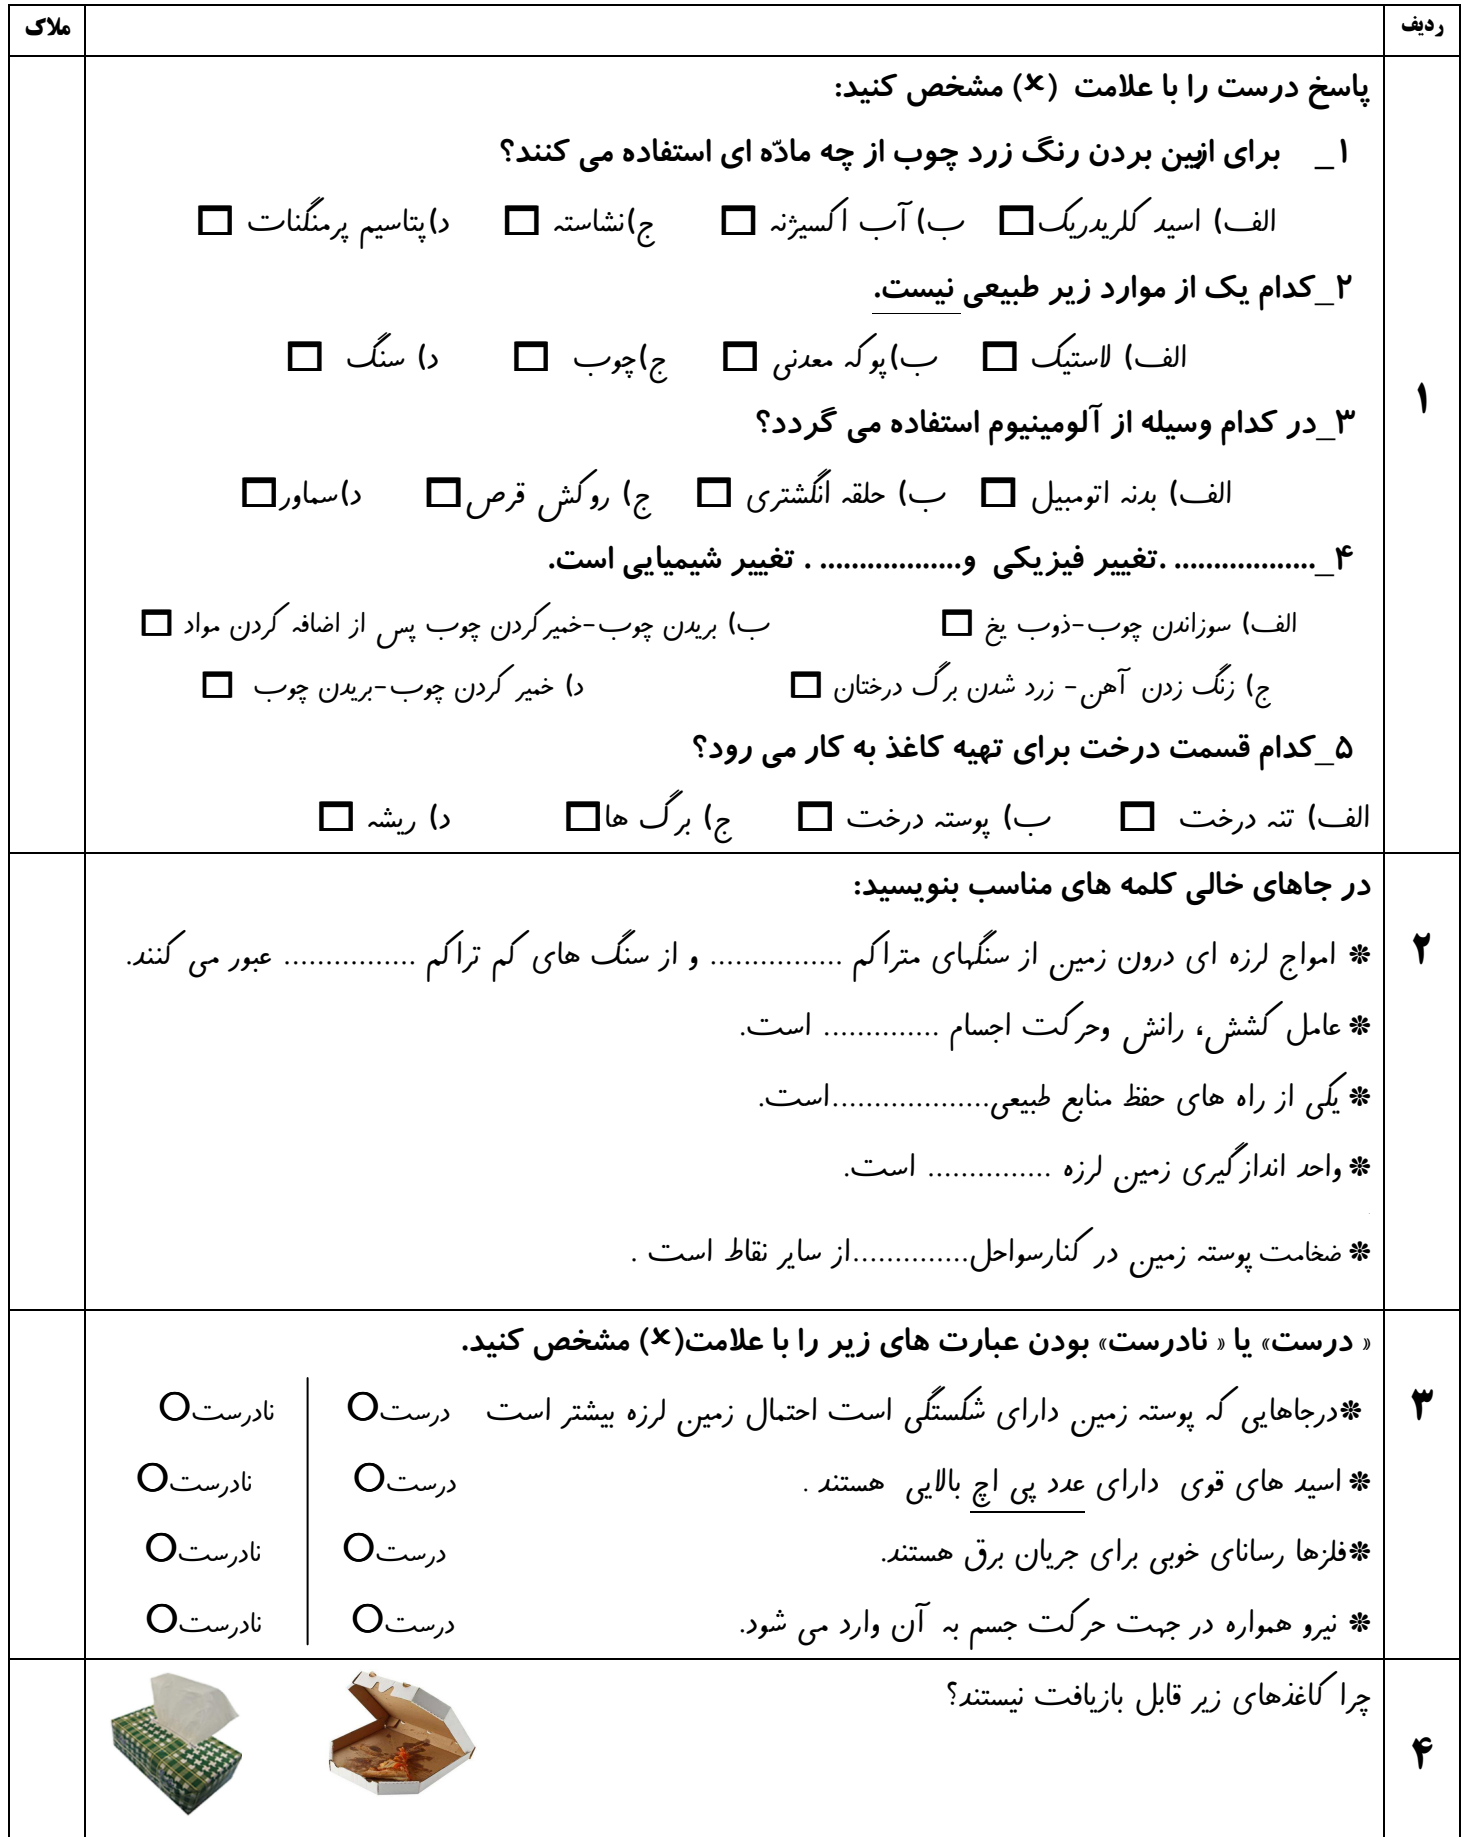 ردیف ملاک
پاسخ درست را با علامت (×) مشخص کنید:
۱_ برای ازبین بردن رنگ زرد چوب از چه مادّه ای استفاده می کنند؟
الف) اسید کلریدریک □ ب) آب اکسیژنه □ ج)نشاسته □ د)پتاسیم پرمنگنات □
۲_کدام یک از موارد زیر طبیعی نیست.
الف) لاستیک □ ب)پوکه معدنی □ ج)چوب □ د) سنگ □
۱
۳_در کدام وسیله از آلومینیوم استفاده می گردد؟
الف) بدنه اتومبیل □ ب) حلقه انگشتری □ ج) روکش قرص □ د)سماور □
۴_................. .تغییر فیزیکی و................. . تغییر شیمیایی است.
الف) سوزاندن چوب-ذوب یخ □ ب) بریدن چوب-خمیرکردن چوب پس از اضافه کردن مواد □
ج) زنگ زدن آهن- زرد شدن برگ درختان □ د) خمیر کردن چوب-بریدن چوب □
۵_کدام قسمت درخت برای تهیه کاغذ به کار می رود؟
الف) تنه درخت □ ب) پوسته درخت □ ج) برگ ها □ د) ریشه □
در جاهای خالی کلمه های مناسب بنویسید:
۲
❊ امواج لرزه ای درون زمین از سنگهای متراکم ................ و از سنگ های کم تراکم ................ عبور می کنند.
❊ عامل کشش، رانش وحرکت اجسام .............. است.
❊ یکی از راه های حفظ منابع طبیعی...................است.
❊ واحد اندازگیری زمین لرزه ............... است.
❊ ضخامت پوسته زمین در کنارسواحل..............از سایر نقاط است .
« درست» یا « نادرست» بودن عبارت های زیر را با علامت(×) مشخص کنید.
۳
❊درجاهایی که پوسته زمین دارای شکستگی است احتمال زمین لرزه بیشتر است درست○ نادرست○
❊ اسید های قوی دارای عدد پی اچ بالایی هستند . درست○ نادرست○
❊فلزها رسانای خوبی برای جریان برق هستند. درست○ نادرست○
❊ نیرو همواره در جهت حرکت جسم به آن وارد می شود. درست○ نادرست○
چرا کاغذهای زیر قابل بازیافت نیستند؟
۴